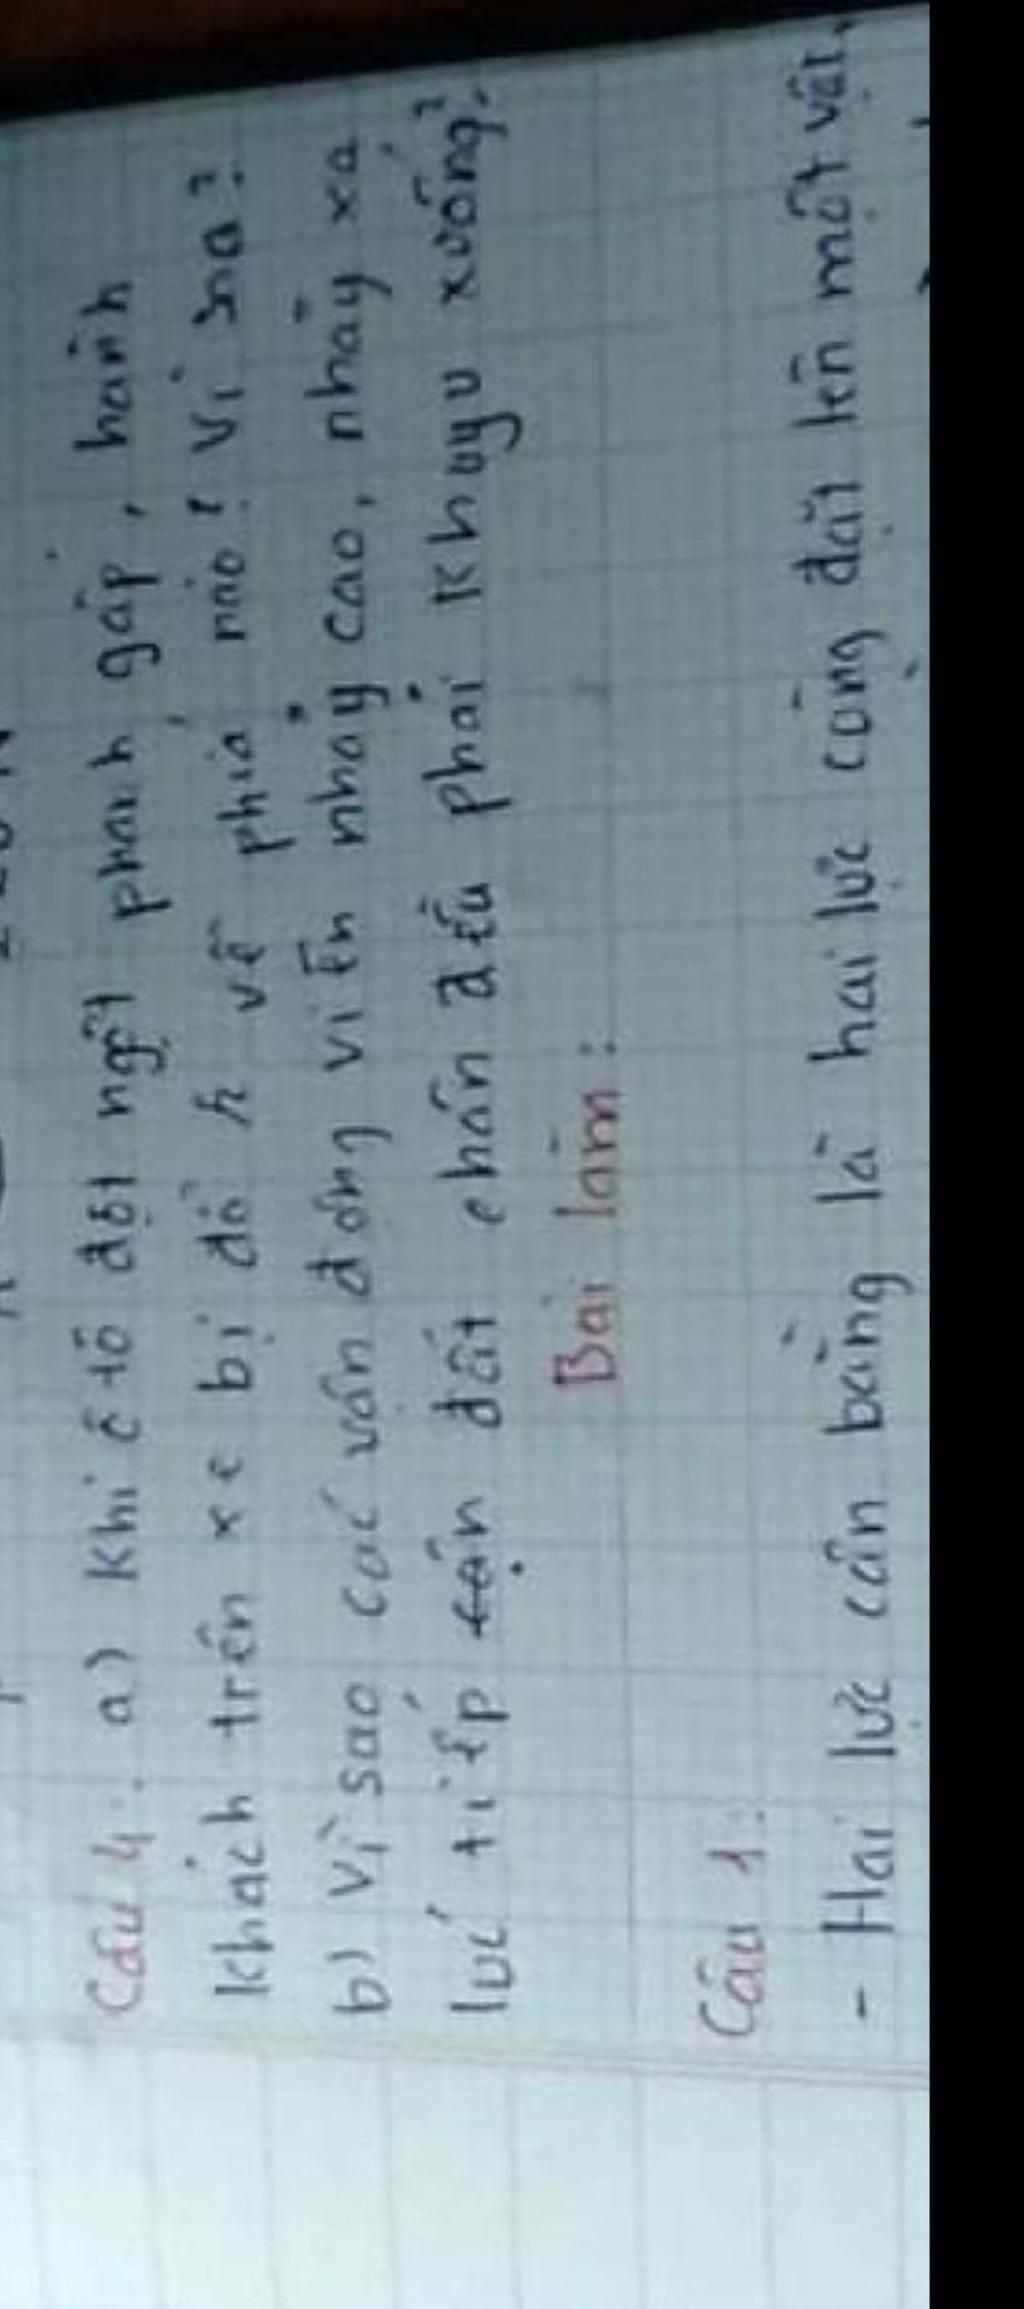 Câu 4: a) Khi ô tô đột ngột phanh gấp, hành
khách trên xe bị đổ về phía nào? Vì sao?
b) Vì sao các vân động viên nhảy cao, nhảy xa
lúc tiếp đất chân đều phải khuyu xuống?
Bài làm:
Câu 1:
- Hai lực cân bằng là hai lực cùng đặt lên một vật,